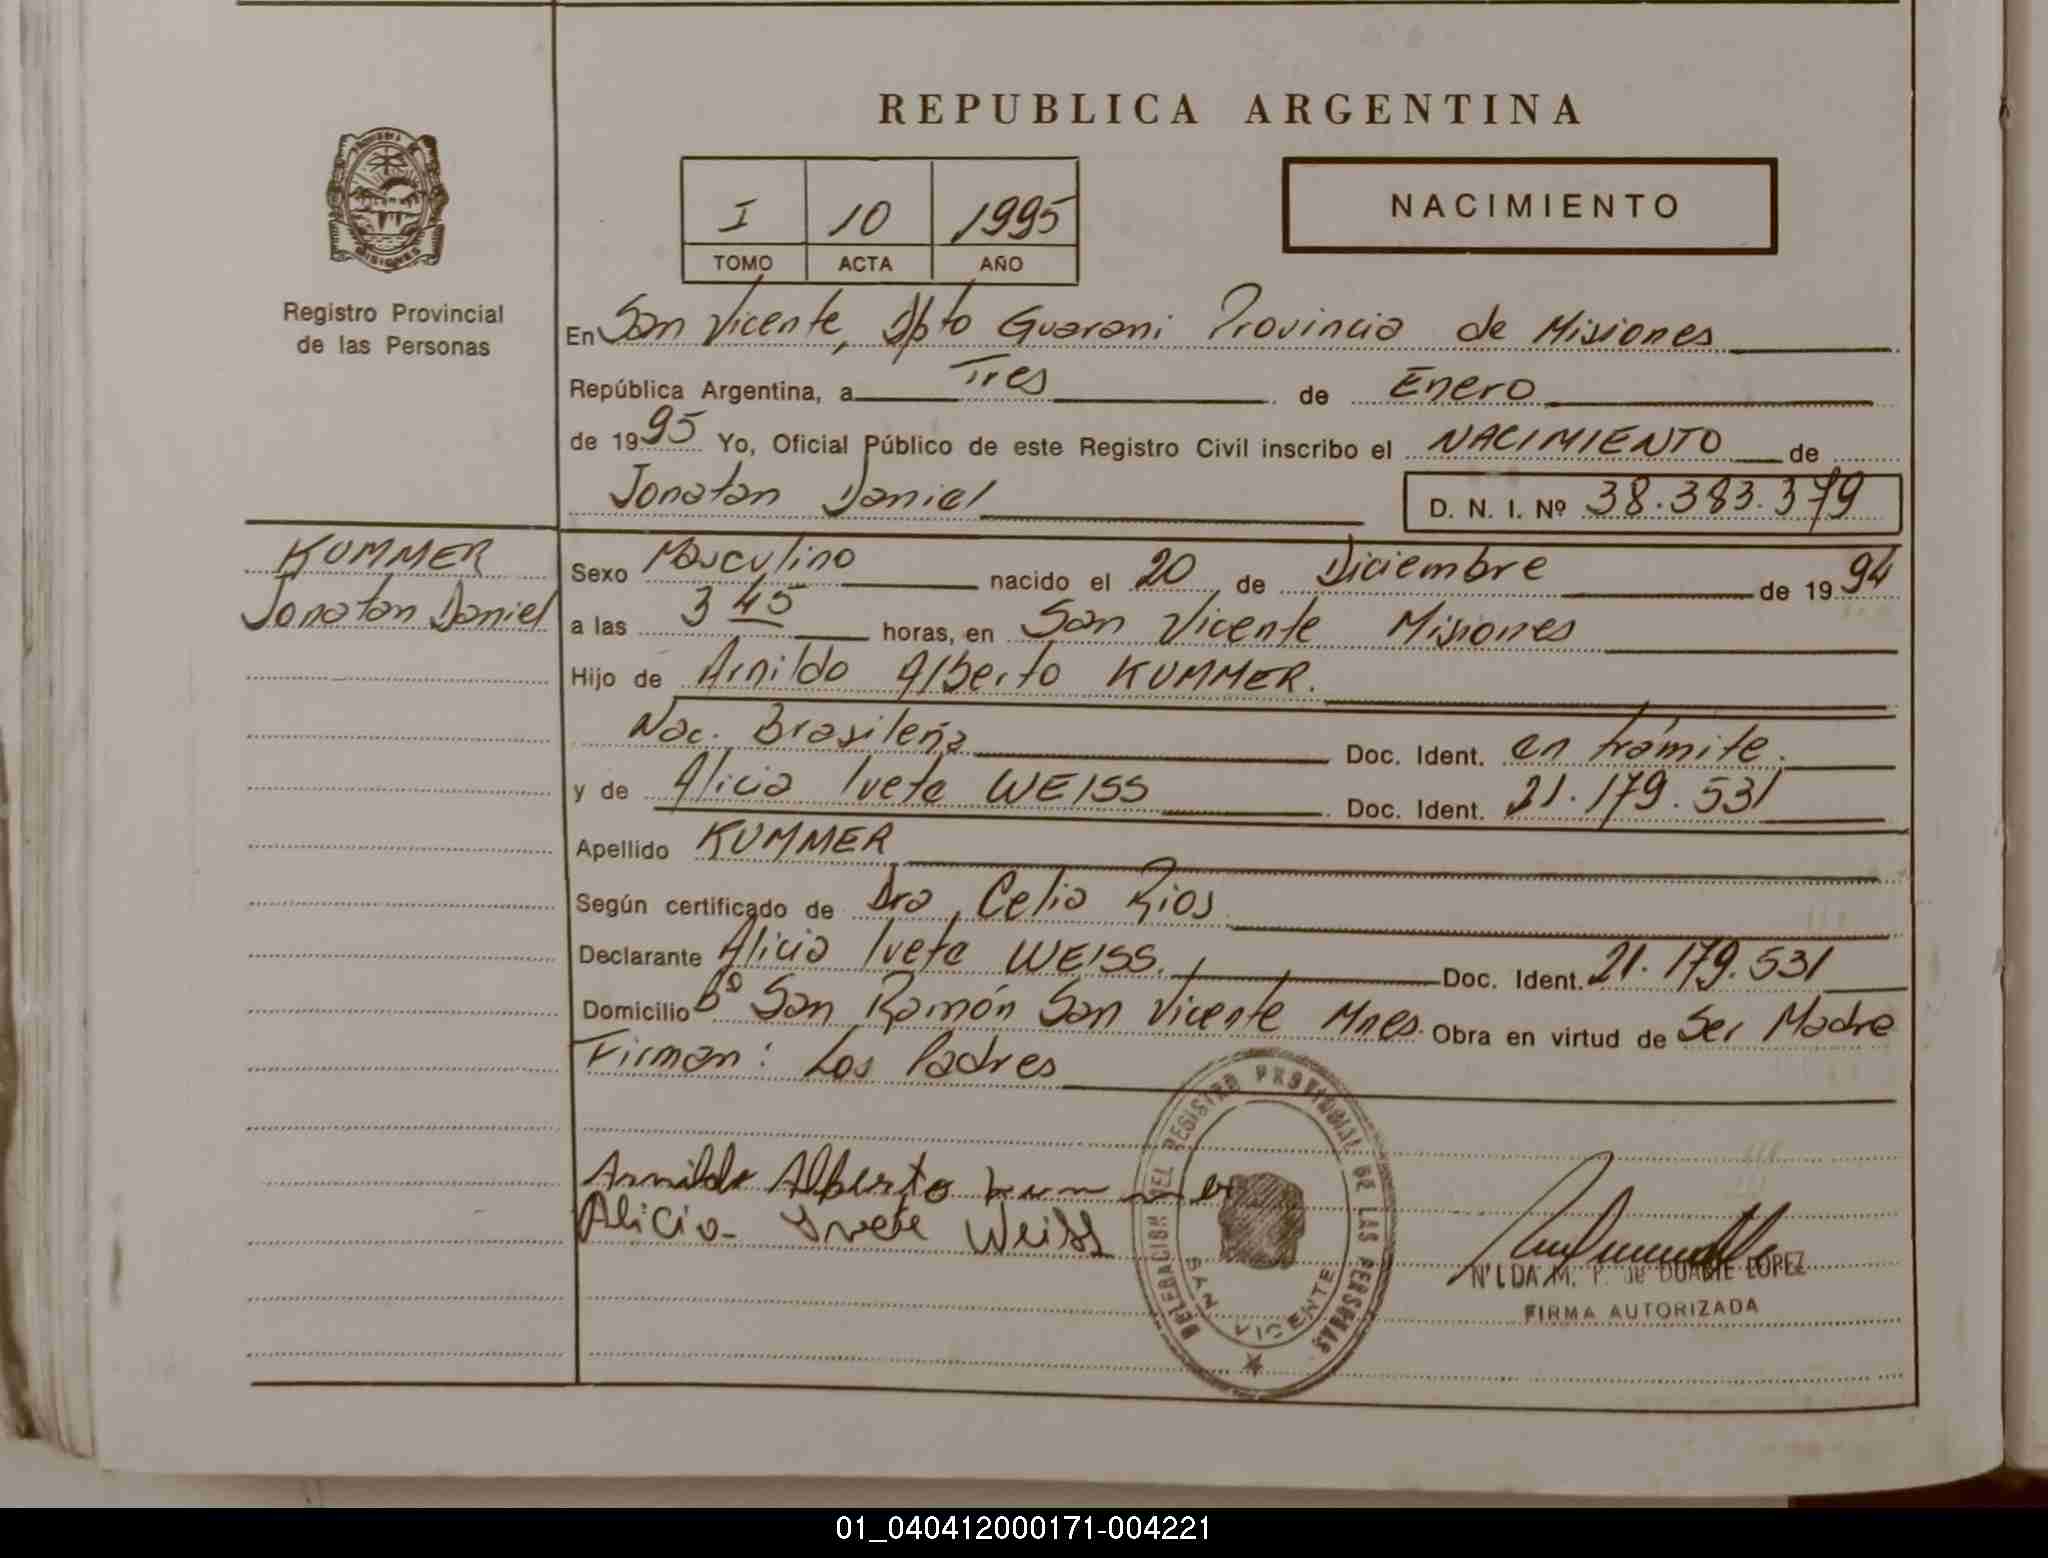 REPUBLICA ARGENTINA
I 10 1995
TOMO ACTA AÑO
NACIMIENTO
MISIONES
Registro Provincial
de las Personas
En San Vicente, Dpto Guarani Provincia de Misiones
República Argentina, a Tres de Enero
de 1995 Yo, Oficial Público de este Registro Civil inscribo el NACIMIENTO de
Jonatan Daniel D. N. I. Nº 38.383.379
KUMMER
Jonatan Daniel
Sexo Masculino nacido el 20 de Diciembre de 1994
a las 3 45 horas, en San Vicente Misiones
Hijo de Arnildo Alberto KUMMER.
Nac. Brasileña Doc. Ident. en trámite.
y de Alicia Ivete WEISS Doc. Ident. 21.179.531
Apellido KUMMER
Según certificado de Dra Celia Rios
Declarante Alicia Ivete WEISS. Doc. Ident. 21.179.531
Domicilio Bº San Ramón San Vicente Mnes. Obra en virtud de Ser Madre
Firman: Los Padres
Arnildo Alberto Kummer
Alicia Ivete Weiss
DELEGACION DEL REGISTRO PROVINCIAL DE LAS PERSONAS
SAN VICENTE
NILDA M. P. de DUARTE LOPEZ
FIRMA AUTORIZADA
01_040412000171-004221